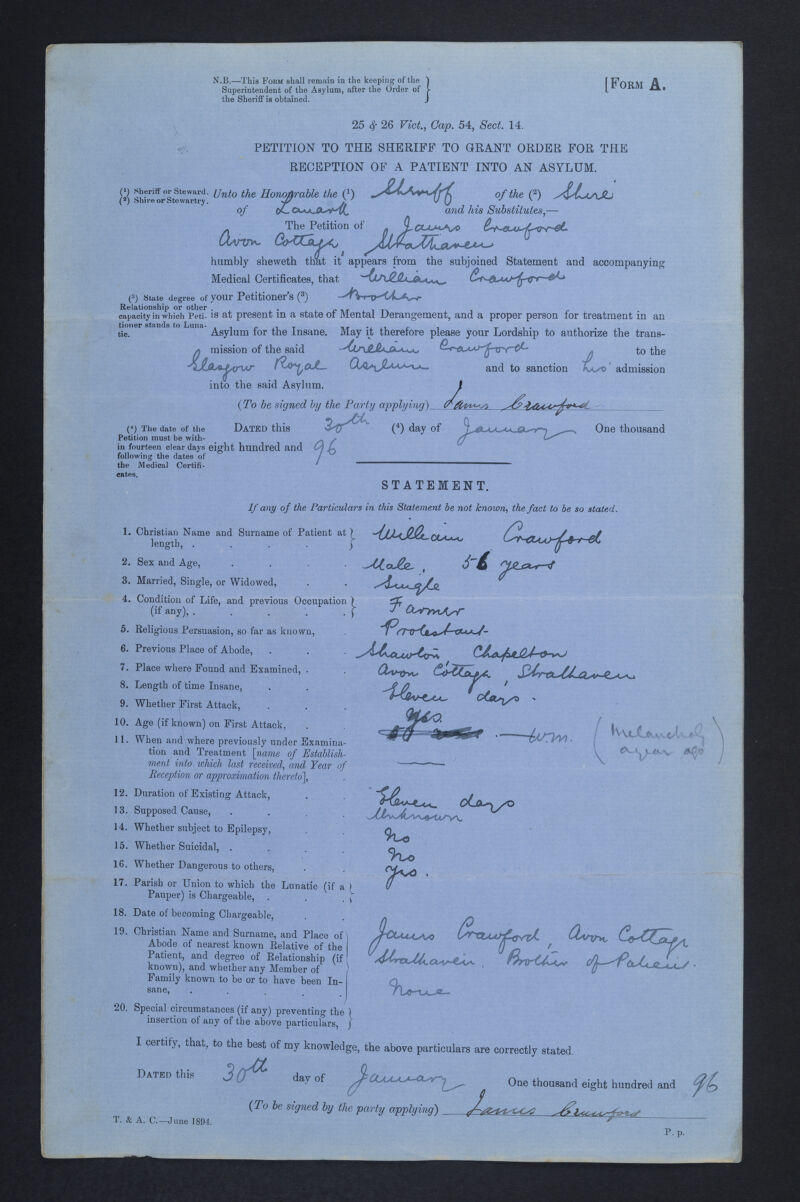 N.B.—This Form shall remain in the keeping of the
Superintendent of the Asylum, after the Order of
the Sheriff is obtained.
[Form A.
25 & 26 Vict., Cap. 54, Sect. 14.
PETITION TO THE SHERIFF TO GRANT ORDER FOR THE
RECEPTION OF A PATIENT INTO AN ASYLUM.
(1) Sheriff or Steward.
(2) Shire or Stewartry.
Unto the Honourable the (1) Sheriff of the (2) Shire
of Lanark and his Substitutes,—
The Petition of James Crawford
Avon Cottage, Strathaven
humbly sheweth that it appears from the subjoined Statement and accompanying
Medical Certificates, that William Crawford
(3) State degree of
Relationship or other
capacity in which Peti-
tioner stands to Luna-
tic.
your Petitioner's (3) Brother
is at present in a state of Mental Derangement, and a proper person for treatment in an
Asylum for the Insane. May it therefore please your Lordship to authorize the trans-
mission of the said William Crawford to the
Glasgow Royal Asylum and to sanction his admission
into the said Asylum.
(To be signed by the Party applying) James Crawford
(4) The date of the
Petition must be with-
in fourteen clear days
following the dates of
the Medical Certifi-
cates.
Dated this 30th (4) day of January One thousand
eight hundred and 96
STATEMENT.
If any of the Particulars in this Statement be not known, the fact to be so stated.
1. Christian Name and Surname of Patient at
length, . William Crawford
2. Sex and Age, Male, 56 years
3. Married, Single, or Widowed, Single
4. Condition of Life, and previous Occupation
(if any), . Farmer
5. Religious Persuasion, so far as known, Protestant
6. Previous Place of Abode, Shawton Chapelton
7. Place where Found and Examined, Avon Cottage, Strathaven
8. Length of time Insane, Eleven days.
9. Whether First Attack, Yes.
10. Age (if known) on First Attack, 50 — W.M. (Melancholy
a year ago)
11. When and where previously under Examina-
tion and Treatment [name of Establish-
ment into which last received, and Year of
Reception or approximation thereto], —
12. Duration of Existing Attack, Eleven days
13. Supposed Cause, Unknown
14. Whether subject to Epilepsy, No
15. Whether Suicidal, No
16. Whether Dangerous to others, Yes.
17. Parish or Union to which the Lunatic (if a
Pauper) is Chargeable,
18. Date of becoming Chargeable,
19. Christian Name and Surname, and Place of
Abode of nearest known Relative of the
Patient, and degree of Relationship (if
known), and whether any Member of
Family known to be or to have been In-
sane,
James Crawford, Avon Cottage
Strathaven. Brother of Patient.
None
20. Special circumstances (if any) preventing the
insertion of any of the above particulars,
I certify, that, to the best of my knowledge, the above particulars are correctly stated.
Dated this 30th day of January One thousand eight hundred and 96
(To be signed by the party applying) James Crawford
T. & A. C.—June 1894.
P. p.